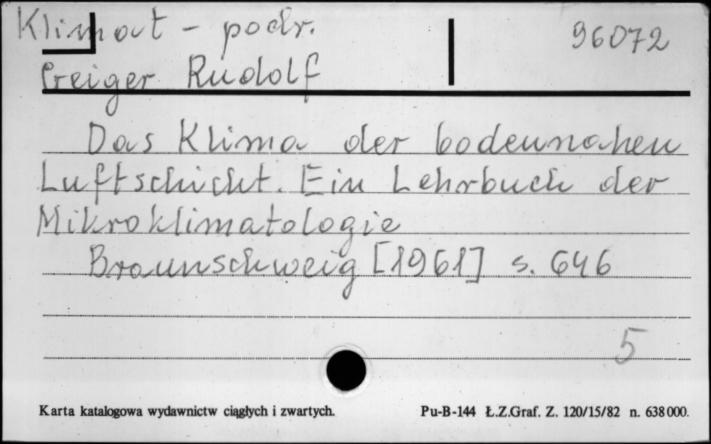 Klimat - podr.
96072
Geiger Rudolf
Das Klima der bodennahen
Luftschicht. Ein Lehrbuch der
Mikroklimatologie
Braunschweig [1961] s. 646
5
Karta katalogowa wydawnictw ciągłych i zwartych.
Pu-B-144 Ł.Z.Graf. Z. 120/15/82 n. 638000.